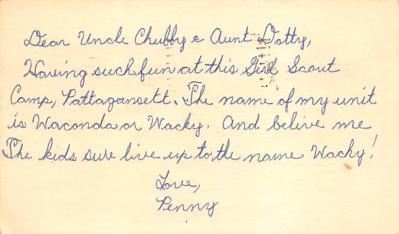 Dear Uncle Chubby & Aunt Dotty,
Having such fun at this Girl Scout
Camp, Pattagansett. The name of my unit
is Waconda or Wacky. And belive me
The kids sure live up to the name Wacky!
Love,
Penny